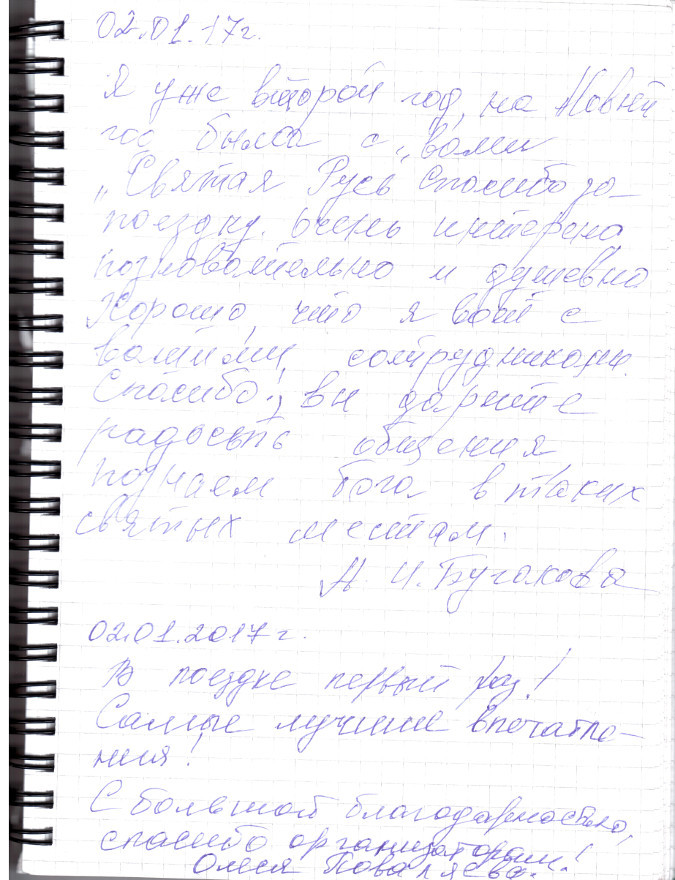 02.01.17г.
Я уже второй год, на Новый
год была с „вами
„Святая Русь Спасибо за
поездку. Очень интерена,
познавательно и душевно
Хорошо, что я с
вашими сотрудниками.
Спасибо! вы дарите
радость общения
познаем бога в таких
святых местам.
А. И. Бугакова
02.01.2017г.
В поездке первый раз!
Самые лучшие впечатле-
ния!
С большой благодарностью,
спасибо организаторам!
Олеся Поваляева.